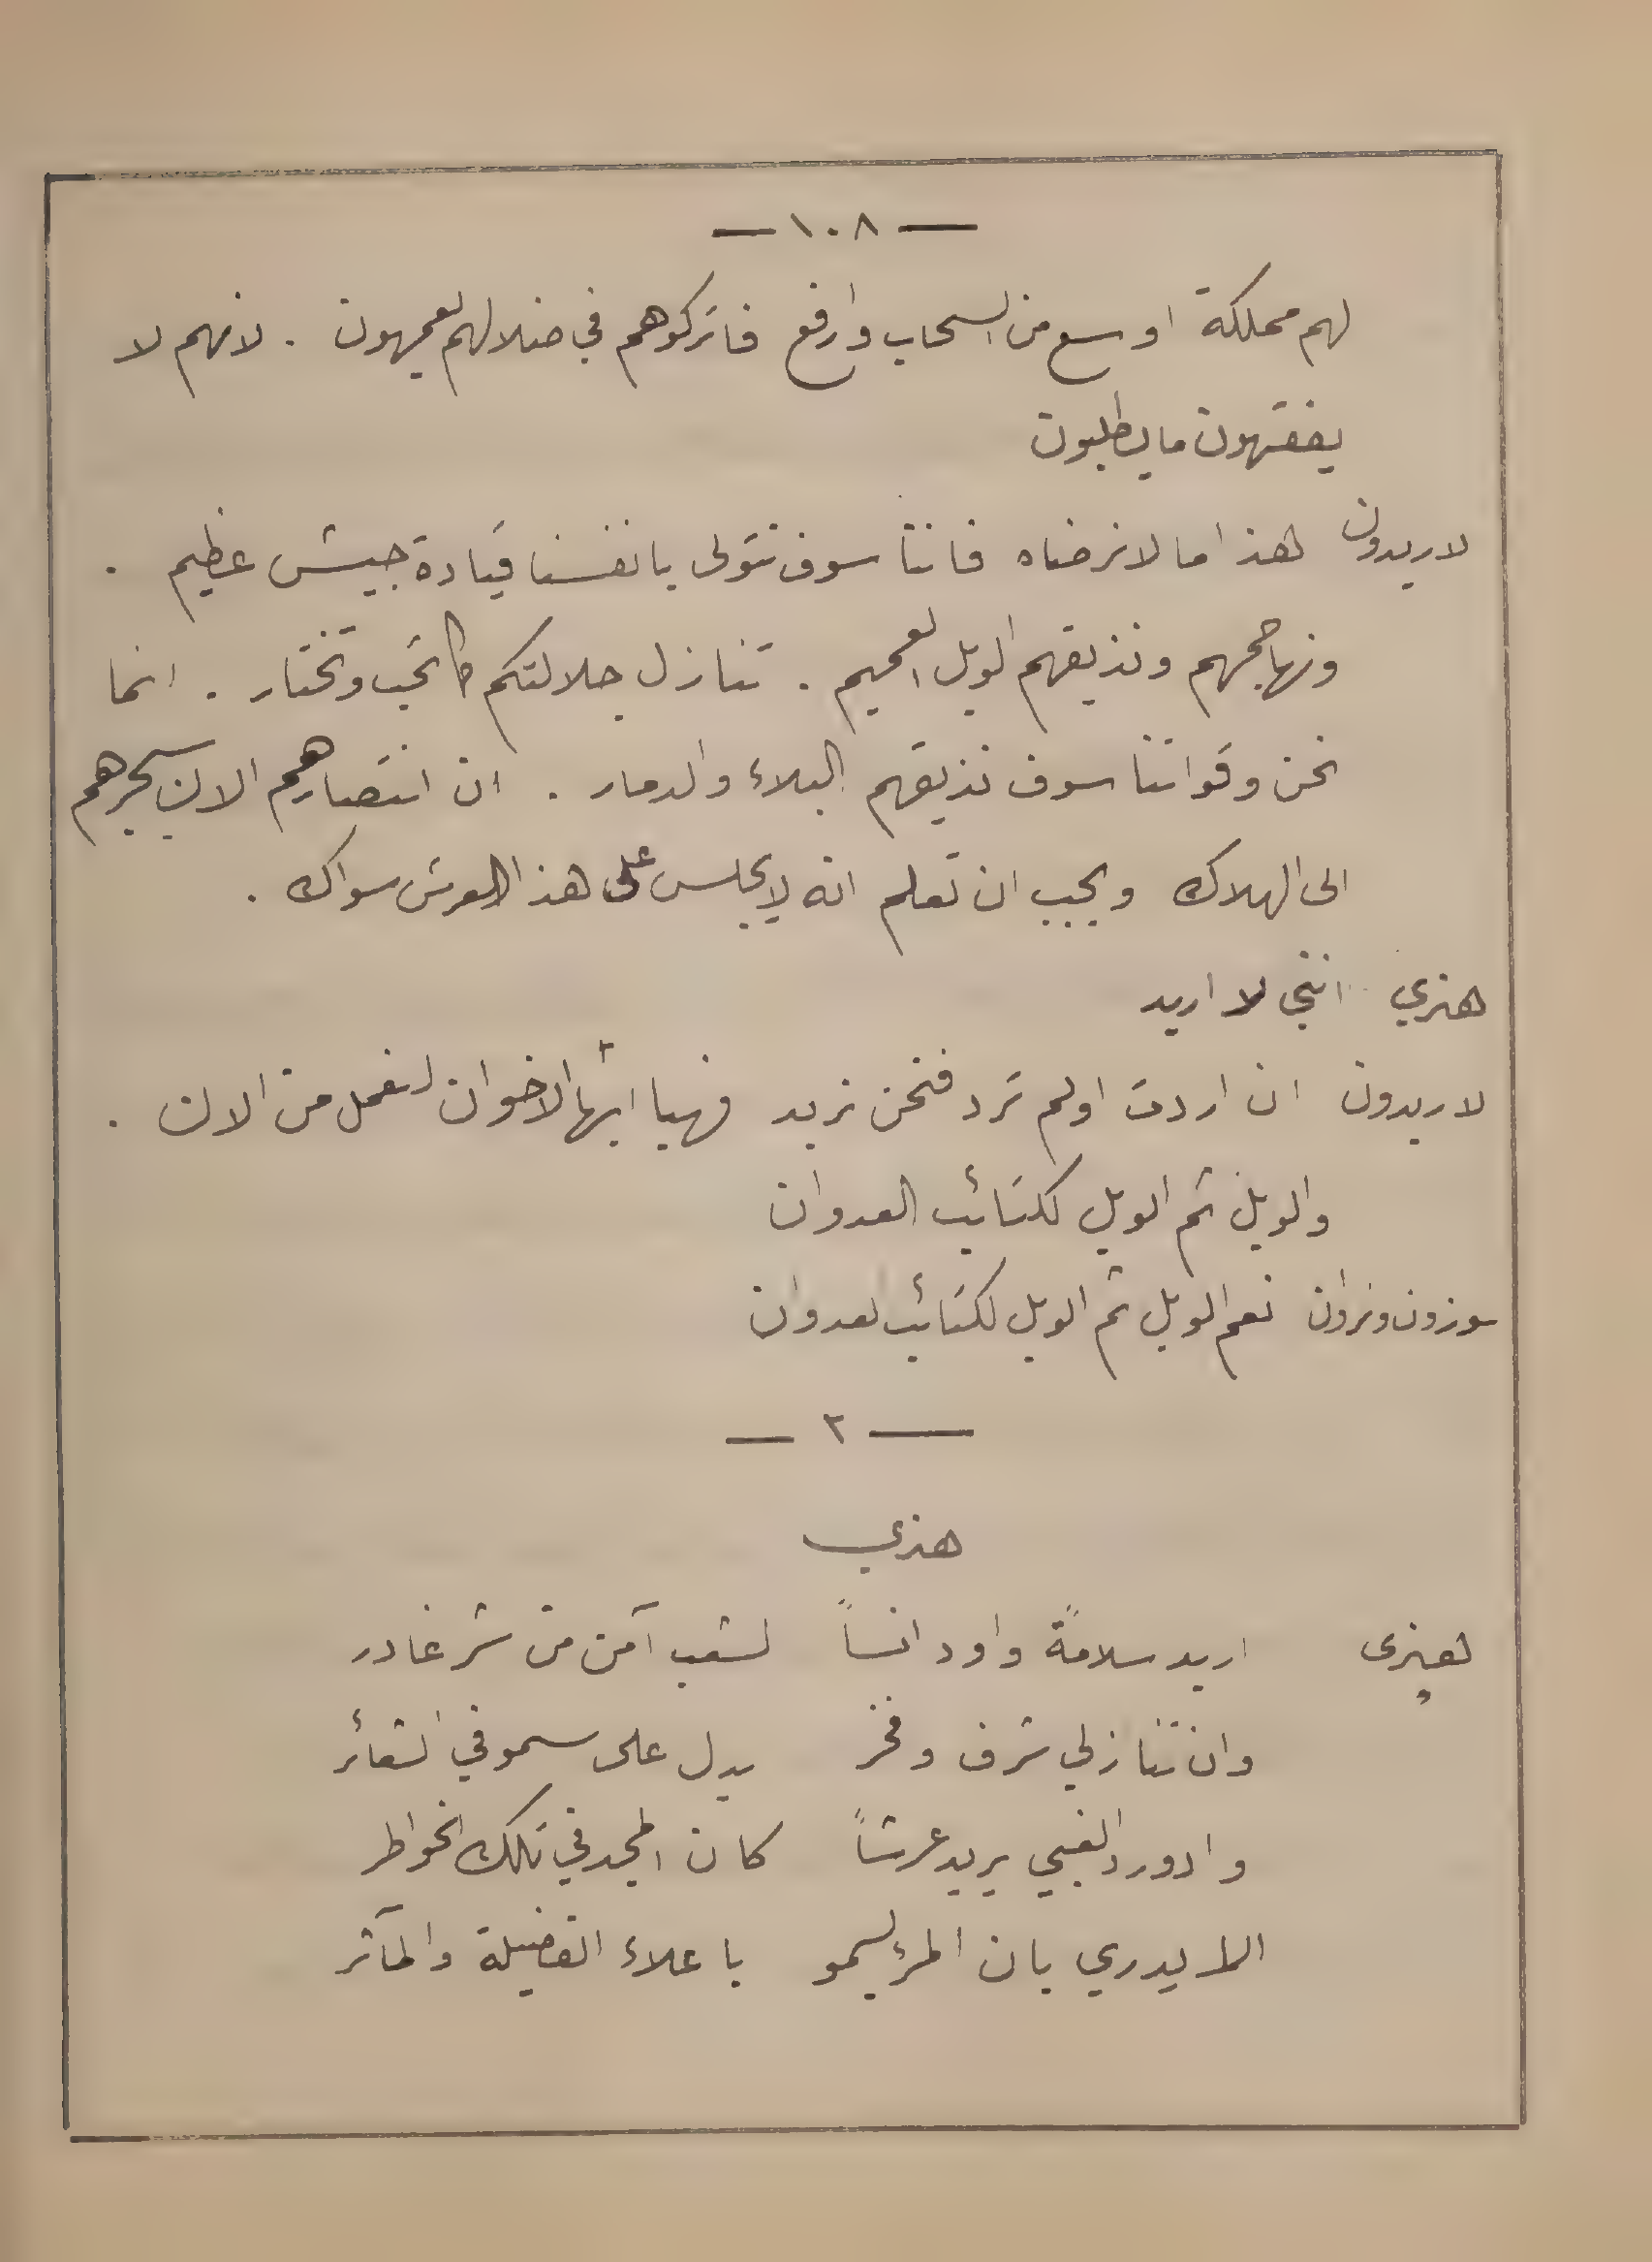 — ١٠٨ —
لهم مملكة اوسع من السحاب وارفع فاتركوهم في ضلالهم يعمهون . لانهم لا
يفقهون ما يطلبون
لاريدون هذا ما لا نرضاه فاننا سوف نتولى بانفسنا قيادة جيش عظيم .
ونهاجمهم ونذيقهم الويل العميم . تنازل جلالتكم كما تحب وتختار . انما
نحن وقواتنا سوف نذيقهم البلاء والدمار . ان انتصارهم الان سيجرهم
الى الهلاك ويجب ان تعلم انه لا يجلس على هذا العرش سواك .
هنري انني لا اريد
لاريدون ان اردت او لم ترد فنحن نريد فهيا ايها الاخوان لنعمل من الان .
والويل ثم الويل لكتائب العدوان
سوزون ونروان نعم الويل ثم الويل لكتائب العدوان
— ٣ —
هنري
هنري اريد سلامةً واود انساً لشعب آمن من شر غادر
وان تنازلي شرف وفخر يدل على سمو في الشعائر
وادورد الغبي يريد عرشاً كان المجد في تلك الخواطر
الا يدري بان المرء يسمو باعلاء الفضيلة والمآثر